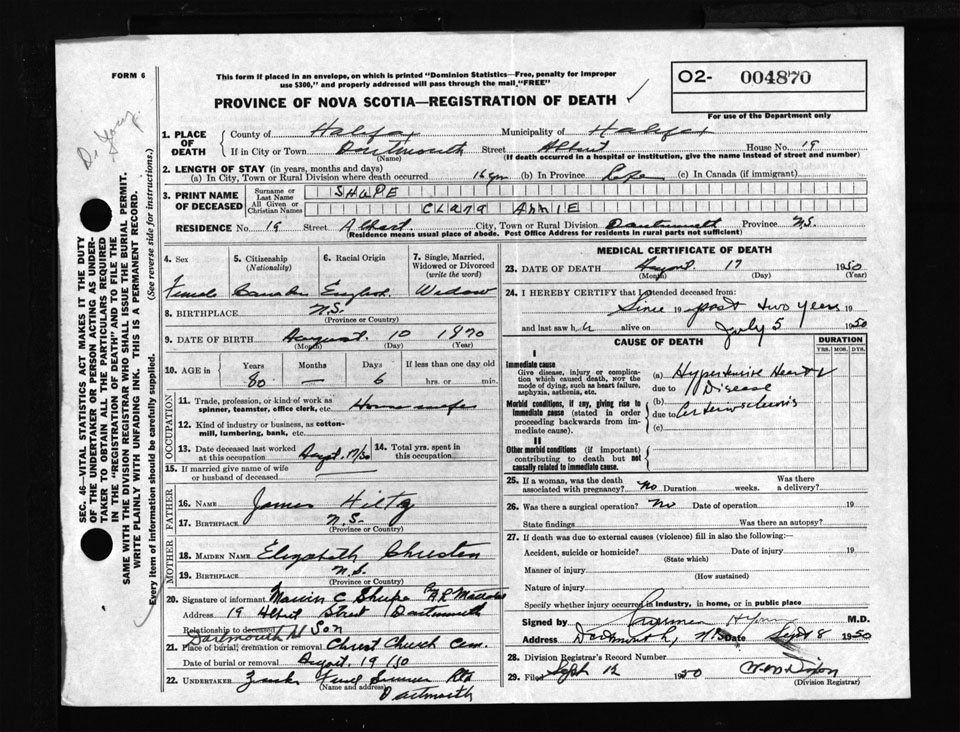 FORM 6
This form if placed in an envelope, on which is printed "Dominion Statistics—Free, penalty for improper
use $300," and properly addressed will pass through the mail "FREE"
PROVINCE OF NOVA SCOTIA—REGISTRATION OF DEATH
02- 004870
For use of the Department only
1. PLACE OF DEATH
County of Halifax Municipality of Halifax
If in City or Town Dartmouth Street Albert House No. 19
(Name) (If death occurred in a hospital or institution, give the name instead of street and number)
2. LENGTH OF STAY (in years, months and days)
(a) In City, Town or Rural Division where death occurred 16 yrs (b) In Province Life (c) In Canada (if immigrant)
3. PRINT NAME OF DECEASED
Surname or Last Name SHUPE
All Given or Christian Names CLARA ANNIE
RESIDENCE No. 19 Street Albert City, Town or Rural Division Dartmouth Province N.S.
(Residence means usual place of abode. Post Office Address for residents in rural parts not sufficient)
4. Sex Female
5. Citizenship (Nationality)
6. Racial Origin English
7. Single, Married, Widowed or Divorced (write the word) Widow
8. BIRTHPLACE N.S.
(Province or Country)
9. DATE OF BIRTH August 10 1870
(Month) (Day) (Year)
10. AGE in Years Months Days If less than one day old
80 — 6 hrs. or min.
OCCUPATION
11. Trade, profession, or kind of work as
spinner, teamster, office clerk, etc. Housewife
12. Kind of industry or business, as cotton-
mill, lumbering, bank, etc.
13. Date deceased last worked at this occupation Augt. 17/50
14. Total yrs. spent in this occupation
15. If married give name of wife
or husband of deceased
FATHER
16. NAME James Hiltz
17. BIRTHPLACE N.S.
(Province or Country)
MOTHER
18. MAIDEN NAME Elizabeth
19. BIRTHPLACE N.S.
(Province or Country)
20. Signature of informant C Shupe
Address 19 Albert Street Dartmouth
Relationship to deceased Son
Dartmouth
21. Place of burial, cremation or removal Christ Church Cem.
Date of burial or removal August 19/50
22. UNDERTAKER Ltd
(Name and address) Dartmouth
MEDICAL CERTIFICATE OF DEATH
23. DATE OF DEATH August 17 1950
(Month) (Day) (Year)
24. I HEREBY CERTIFY that I attended deceased from:
Since 19 past two years 19
and last saw h alive on July 5 1950
CAUSE OF DEATH
DURATION
YRS. MOS. DYS.
I
Immediate cause
Give disease, injury or complica-
tion which caused death, NOT the
mode of dying, such as heart failure,
asphyxia, asthenia, etc.
(a) Hypertensive Heart
due to Disease
Morbid conditions, if any, giving rise to
immediate cause (stated in order
proceeding backwards from im-
mediate cause).
(b)
due to Arteriosclerosis
(c)
II
Other morbid conditions (if important)
contributing to death but not
causally related to immediate cause.
25. If a woman, was the death
associated with pregnancy? No Duration weeks. Was there a delivery?
26. Was there a surgical operation? No Date of operation 19
State findings Was there an autopsy?
27. If death was due to external causes (violence) fill in also the following:—
Accident, suicide or homicide? Date of injury 19
(State which)
Manner of injury
(How sustained)
Nature of injury
Specify whether injury occurred in industry, in home, or in public place
Signed by M.D.
Address Dartmouth, N.S. Date Sept 8 1950
28. Division Registrar's Record Number
29. Filed Sept 12 1950 Dixon
(Division Registrar)
SEC. 46—VITAL STATISTICS ACT MAKES IT THE DUTY
OF THE UNDERTAKER OR PERSON ACTING AS UNDER-
TAKER TO OBTAIN ALL THE PARTICULARS REQUIRED
IN THE "REGISTRATION OF DEATH" AND TO FILE THE
SAME WITH THE DIVISION REGISTRAR WHO SHALL ISSUE THE BURIAL PERMIT.
WRITE PLAINLY WITH UNFADING INK. THIS IS A PERMANENT RECORD.
Every item of information should be carefully supplied. (See reverse side for instructions.)